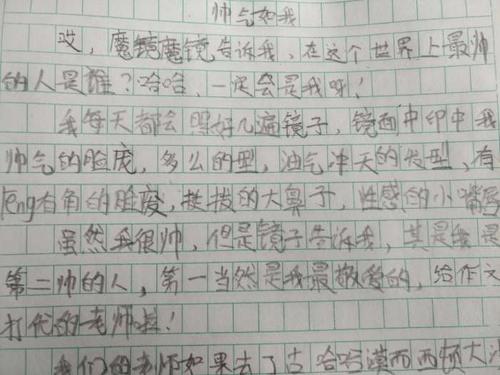 帅气如我
哎，魔镜魔镜告诉我，在这个世界上最帅
的人是谁？哈哈，一定会是我呀！
我每天都会照好几遍镜子，镜面中印中我
帅气的脸庞，多么的型，油气冲天的发型，有
leng有角的脸庞，挺拔的大鼻子，性感的小嘴唇
虽然我很帅，但是镜子告诉我，其是我是
第二帅的人，第一当然是我最敬爱的，给作文
打代的老帅啦！
我们的老师如果去了古 哈哈漠而西顿大沙